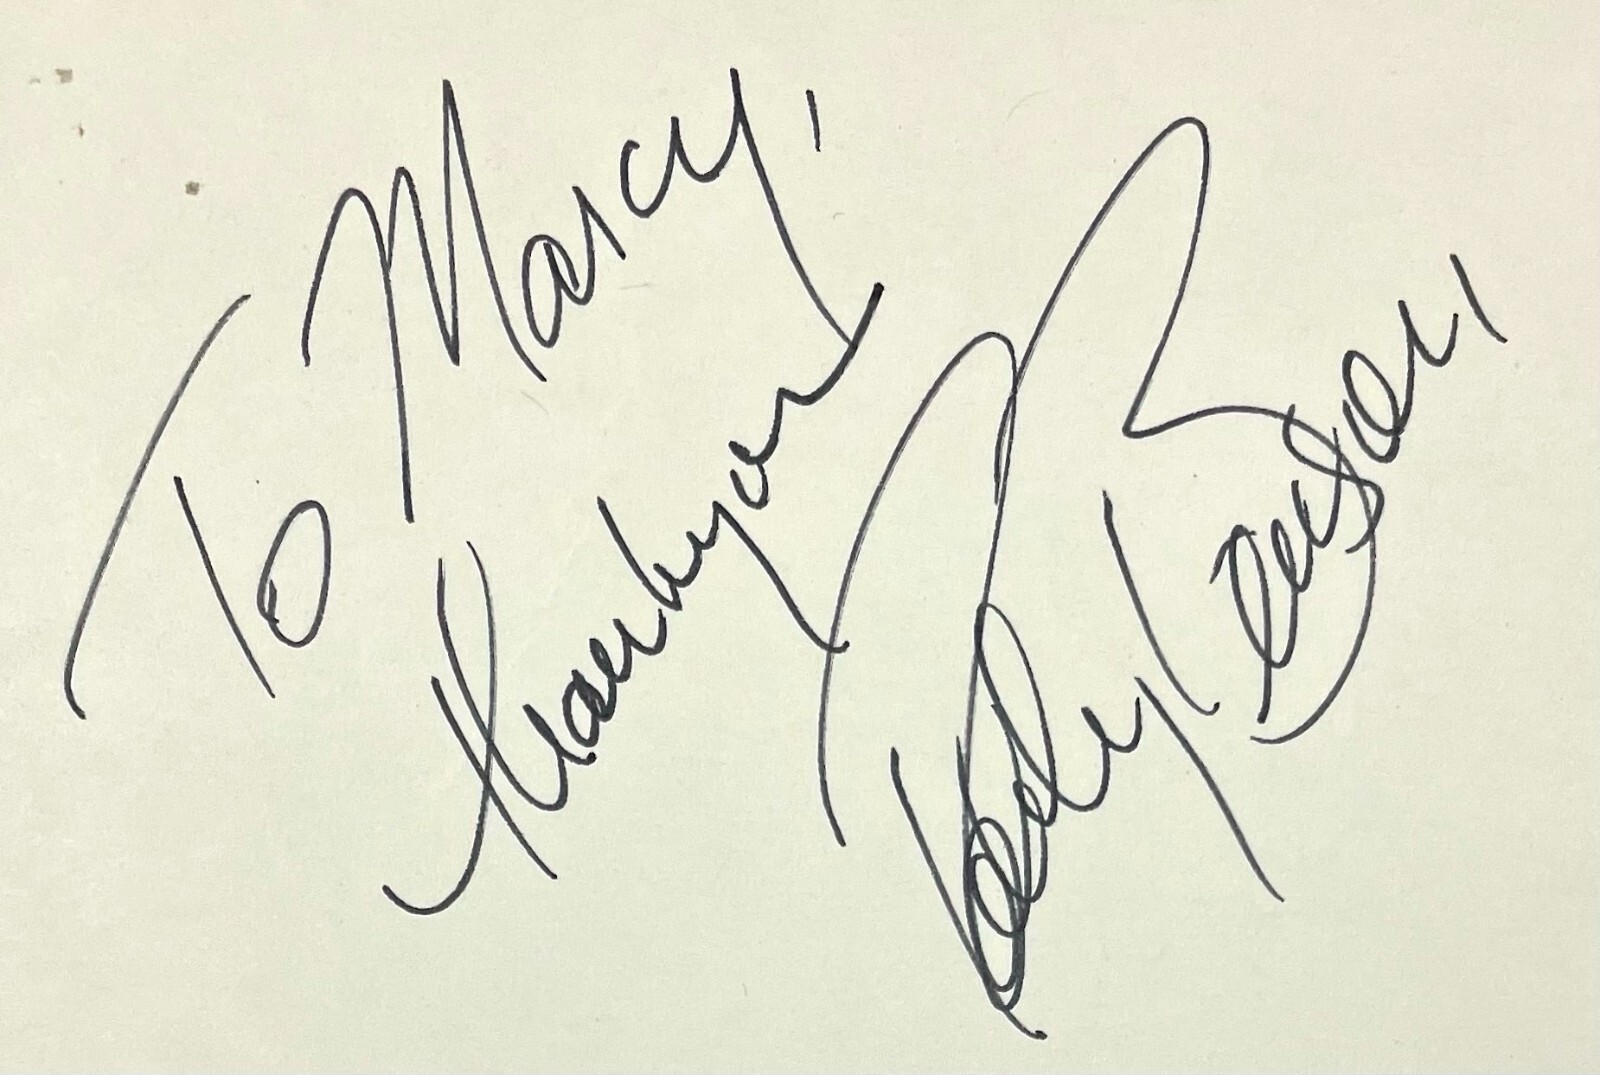 To Marcy,
Thank you
Robby Benson